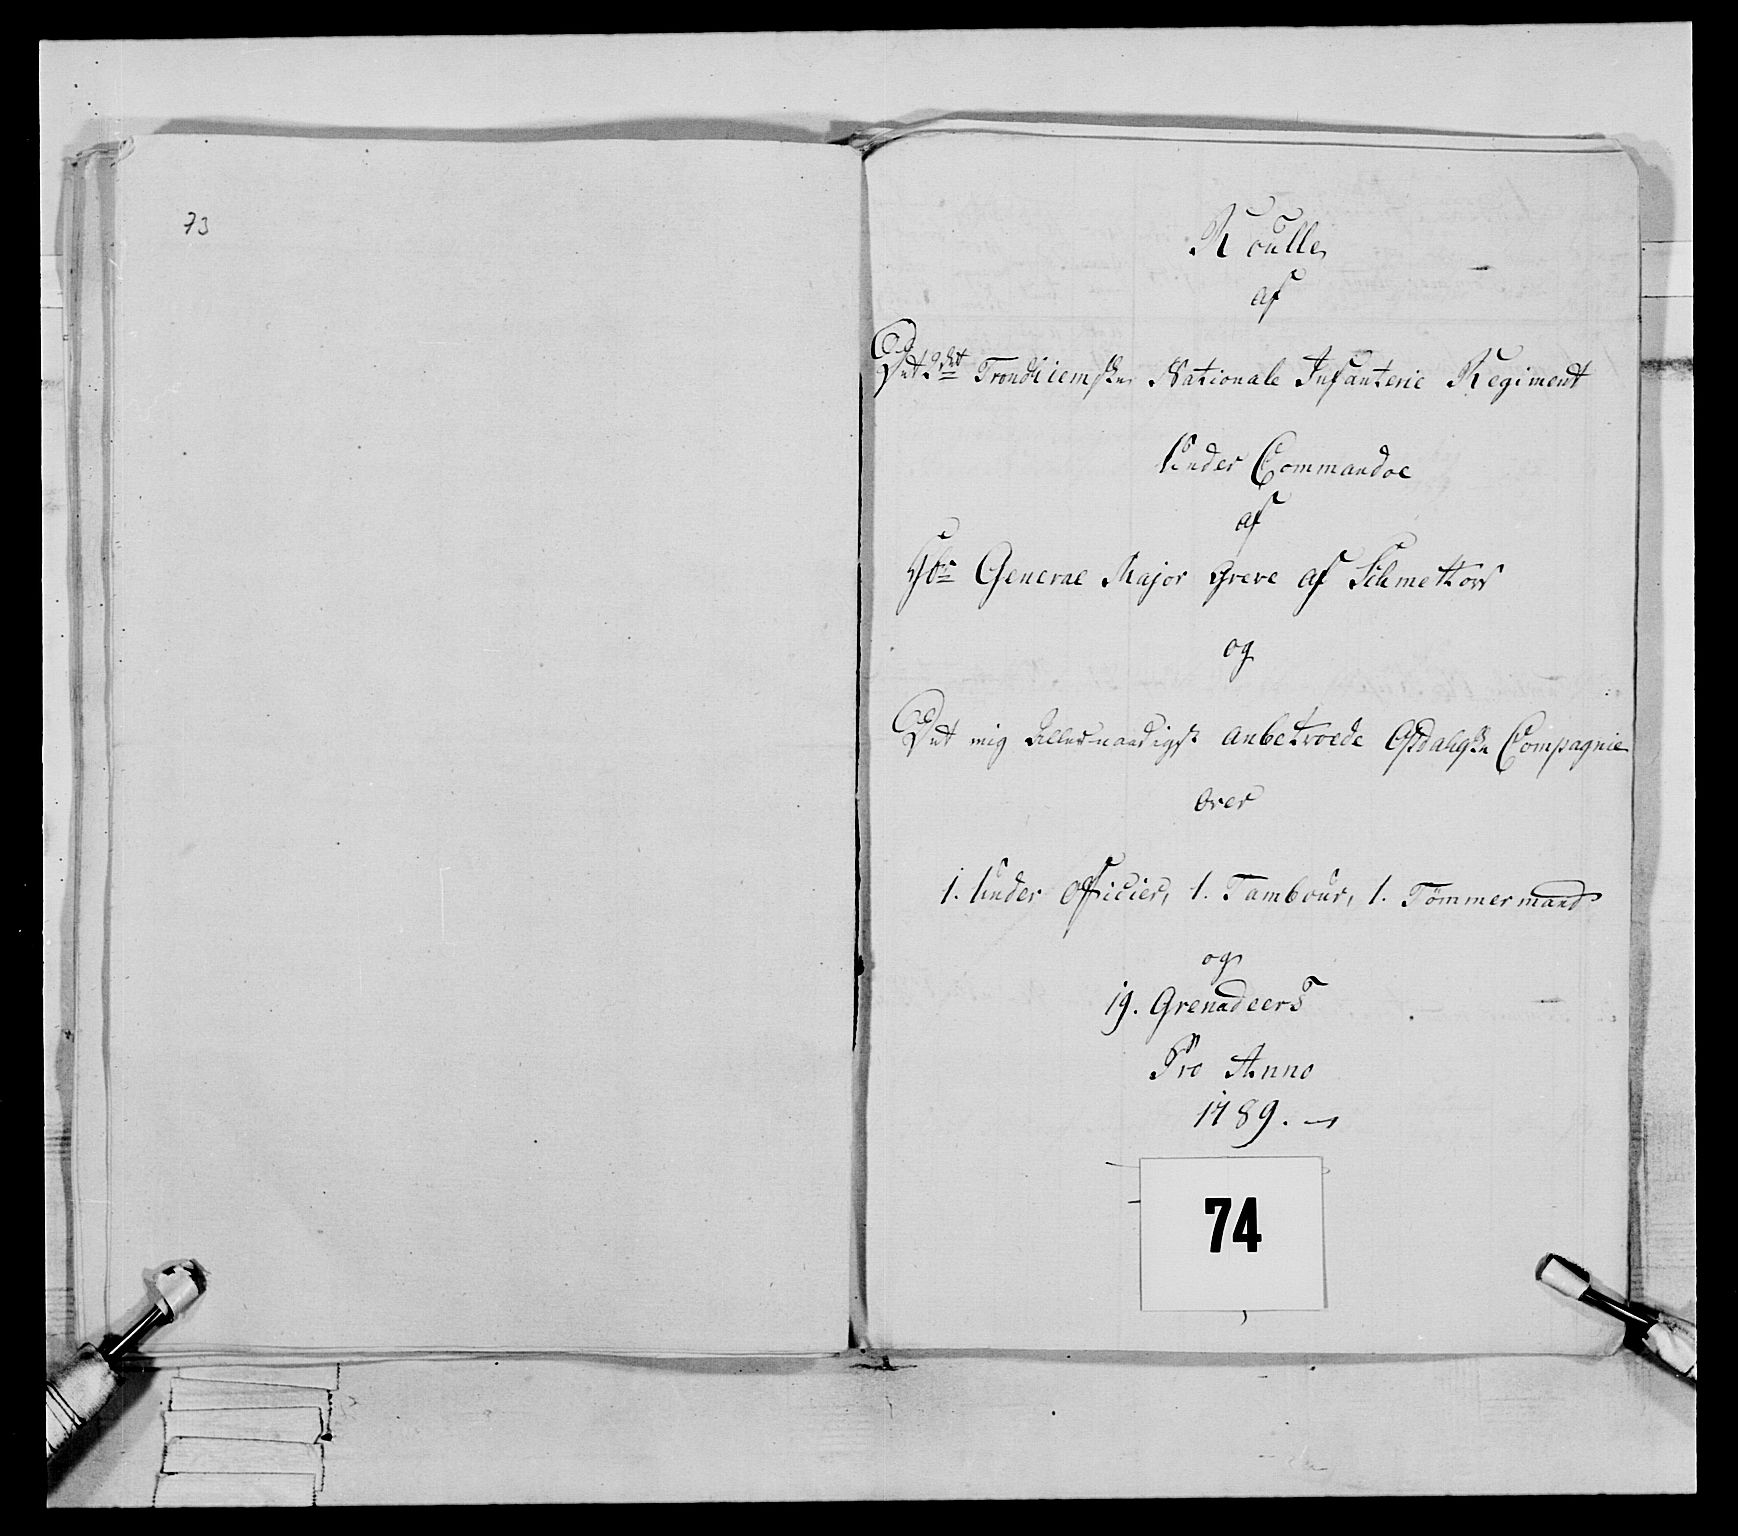 73
Roulle
af
Det 2det Trondhiemske Nationale Infanterie Regiment
Under Commandoe
af
Hr General Major Greve af Schmettow
og
Det mig Allernaadigst anbetroede Opdalske Compagnie
over
1. Under Officier, 1. Tambour, 1. Tömmermand
og
19. Grenadeers
Pro Anno
1789.
74